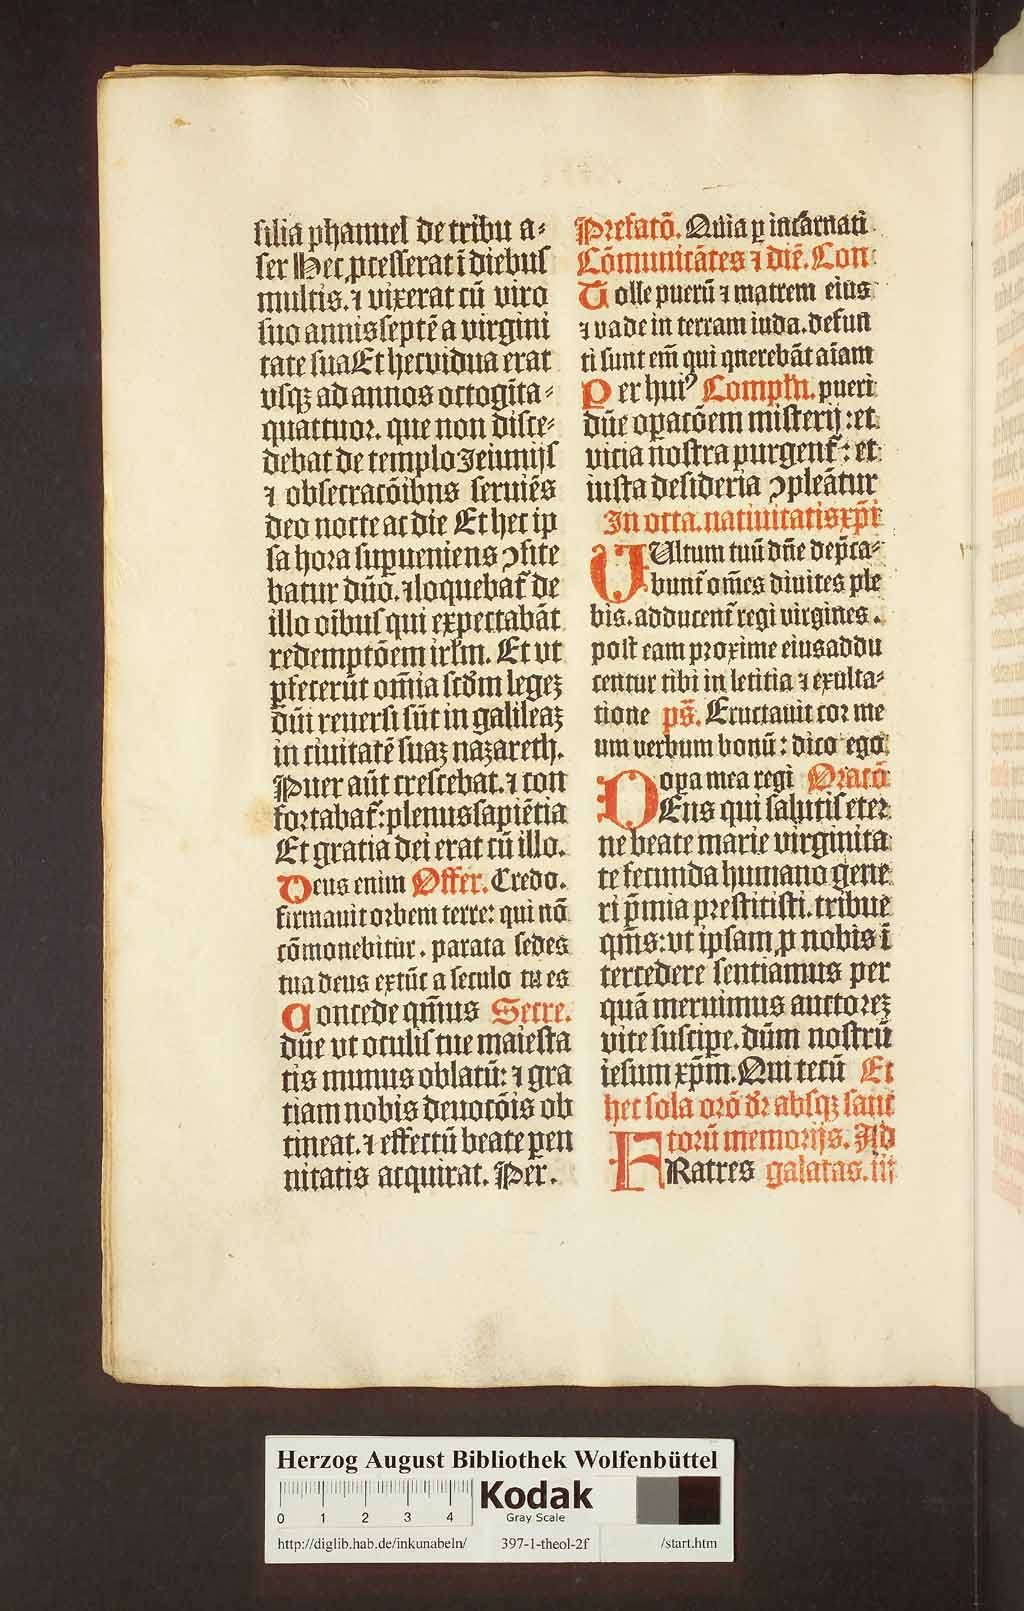 filia phanuel de tribu a⸗
ser Hec p̱cesserat ī diebus
multis. ⁊ vixerat cū viro
suo annis septē a virgini
tate sua Et hec vidua erat
vsqꝫ ad annos octogīta⸗
quattuor. que non disce⸗
debat de templo Jeiunijs
⁊ obsecracōibus seruiēs
deo nocte ac die Et hec ip
sa hora supueniens ꝯfite
batur dūo. ⁊ loquebat᷑ de
illo oībus qui expectabāt
redemptōem irl̄m. Et vt
ꝑfecerūt om̄ia scdm̄ legeꝫ
dūi reuersi sūt in galileaꝫ
in ciuitatē suaꝫ nazareth.
Puer aūt crescebat. ⁊ con
fortabat᷑: plenus sapiētia
Et gratia dei erat cū illo.
Deus enim Offer. Credo.
firmauit orbem terre: qui nō
cōmonebitur. parata sedes
tua deus extūc a seculo tu es
Concede qm̄us Secre.
dūe vt oculis tue maiesta
tis munus oblatū: ⁊ gra
tiam nobis deuotōis ob
tineat. ⁊ effectū beate pen
nitatis acquirat. Per.
Prefatō. Quia ꝑ incarnati
Cōmunicātes ⁊ diē. Con
Tolle puerū ⁊ matrem eius
⁊ vade in terram iuda. defun
ti sunt em̄ qui querebāt aīam
Per huiꝰ Compln̄. pueri
dūe opacōem misterij: et
vicia nostra purgent᷑: et
iusta desideria ꝯpleātur
In octa. natiuitatis xp̄i
VUltum tuū dn̄e dep̄ca⸗
bunt᷑ om̄es diuites ple
bis. adducent᷑ regi virgines.
post eam proxime eius addu
centur tibi in leticia ⁊ exulta⸗
tione ps̄. Eructauit cor me
um verbum bonū: dico ego
opa mea regi Oracō
DEus qui salutis eter
ne beate marie virginita
te fecunda humano gene
ri p̄mia prestitisti. tribue
qm̄s: vt ipsam ꝓ nobis ī
tercedere sentiamus per
quā meruimus auctoreꝫ
vite suscipe. dūm nostrū
iesum xp̄m. Qui tecū Et
hec sola orō dr̄ absqꝫ sanc
torū memorijs. Ad
FRatres galatas. iij
Herzog August Bibliothek Wolfenbüttel
0 1 2 3 4
Kodak
Gray Scale
http://diglib.hab.de/inkunabeln/ 397-1-theol-2f /start.htm